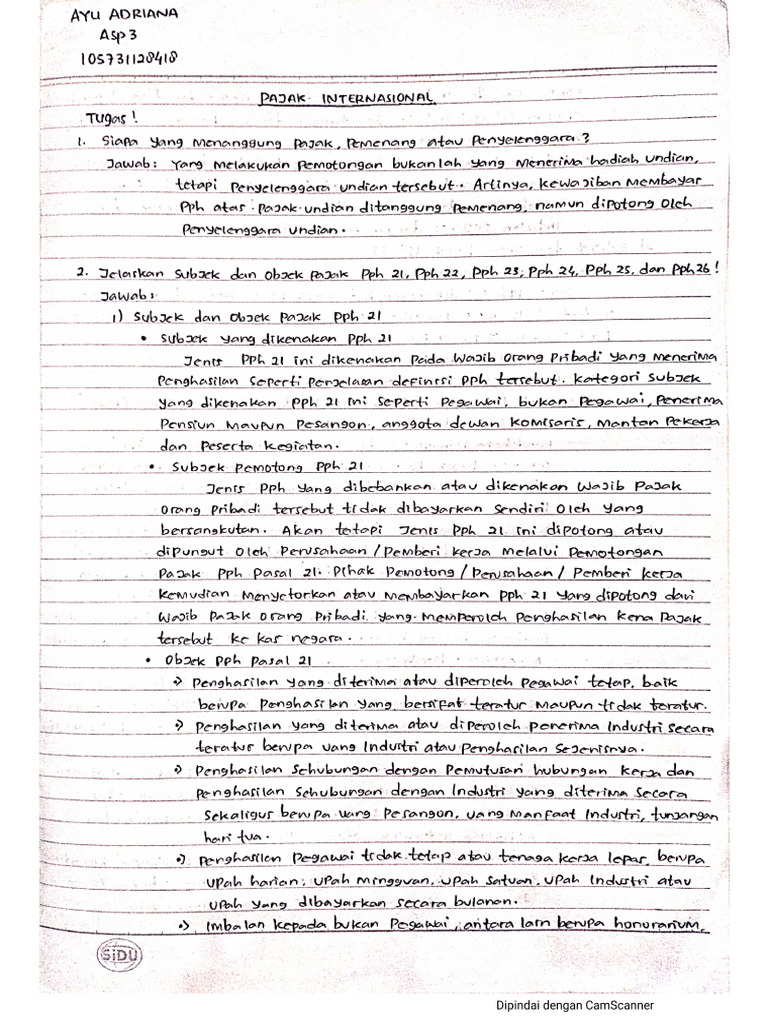 AYU ADRIANA
Asp3
105731128418
PAJAK INTERNASIONAL
Tugas!
1. Siapa yang menanggung pajak, pemenang atau penyelenggara?
Jawab: Yang melakukan pemotongan bukanlah yang menerima hadiah undian,
tetapi penyelenggara undian tersebut. Artinya, kewajiban membayar
pph atas pajak undian ditanggung pemenang, namun dipotong oleh
penyelenggara undian.
2. Jelaskan subjek dan objek pajak pph 21, pph 22, pph 23, pph 24, pph 25, dan pph 26!
Jawab:
1) Subjek dan objek pajak pph 21
• Subjek yang dikenakan pph 21
Jenis pph 21 ini dikenakan pada wajib orang pribadi yang menerima
penghasilan seperti penjelasan definisi pph tersebut. Kategori subjek
yang dikenakan pph 21 ini seperti pegawai, bukan pegawai, penerima
pensiun maupun pesangon, anggota dewan komisaris, mantan pekerja
dan peserta kegiatan.
• Subjek pemotong pph 21
Jenis pph yang dibebankan atau dikenakan wajib pajak
orang pribadi tersebut tidak dibayarkan sendiri oleh yang
bersangkutan. Akan tetapi jenis pph 21 ini dipotong atau
dipungut oleh perusahaan/pemberi kerja melalui pemotongan
pajak pph pasal 21. Pihak pemotong/perusahaan/pemberi kerja
kemudian menyetorkan atau membayarkan pph 21 yang dipotong dari
wajib pajak orang pribadi yang memperoleh penghasilan kena pajak
tersebut ke kas negara.
• Objek pph pasal 21
•) Penghasilan yang diterima atau diperoleh pegawai tetap, baik
berupa penghasilan yang bersifat teratur maupun tidak teratur.
•) Penghasilan yang diterima atau diperoleh penerima industri secara
teratur berupa uang industri atau penghasilan sejenisnya.
•) Penghasilan sehubungan dengan pemutusan hubungan kerja dan
penghasilan sehubungan dengan industri yang diterima secara
sekaligus berupa uang pesangon, uang manfaat industri, tunjangan
hari tua.
•) Penghasilan pegawai tidak tetap atau tenaga kerja lepas, berupa
upah harian, upah mingguan, upah satuan, upah industri atau
upah yang dibayarkan secara bulanan.
•) Imbalan kepada bukan pegawai, antara lain berupa honorarium,
SiDU
Dipindai dengan CamScanner